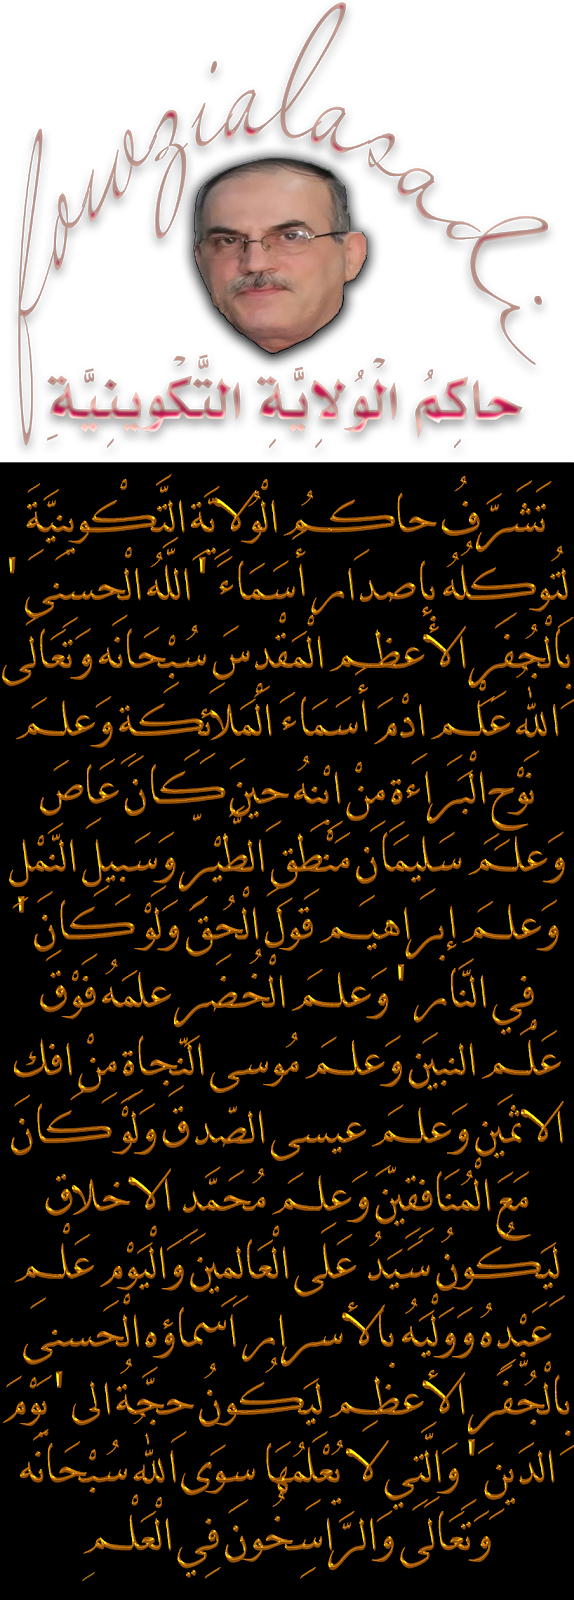 fowzialasadi
حاكِمُ الْوُلايَّةِ التَّكْوينِيَّةِ
تَشَرَّفُ حاكمُ الْوُلايَّةِ التَّكْوينِيَّةَ
لتُوكلُهُ بإصدَار أسَمَاءَ ' اللَّهُ الْحسنَى '
بَالْجُفَر الأْعظم الْمَقْدسَ سُبْحَانَه وَتَعَالَى
اللهُ عَلْم ادْمَ أسَمَاءَ الُمَلائكَة وَعلمَ
نَوْح الْبَراَءَة منْ ابْنهُ حينَ كَانَ عَاصَ
وَعلمَ سَليمَانَ مَنْطَقَ الطَّيْر وَسَبيلَ النَّمْل
وَعلمَ إبرَاهيَم قَولَ الْحُقَ وَلوْ كَانَ '
في النَّار ' وَعلمَ الْخُضَر علمَهُ فَوْقَ
عَلُم النبيَن وَعلمَ مُوسى النّجاة منْ افك
الاثمَين وَعلمَ عيسى الصّدقَ وَلَوْ كَانَ
مَعَ الْمُنَافَقينَّ وَعلمَ مُحَمَّد الاخلاق
لَيَكُونُ سَيَدُ عَلَى الْعَالمينَ وَالْيَوْم عَلْم
عَبْدهُ وَوَلْيَهُ بالأسرار اَسَماؤه الْحَسنىَ
بالْجُفَّر الأعظم لَيَكُونُ حجَّةُ الى ' يَوْمَ
الدَين ' وَالَّتِي لا يُعْلَمُهَا سوَى اللهُ سُبْحَانَه
وَتَعَالَى وَالرَّاسَخُونَ فِي الْعَلْمِ